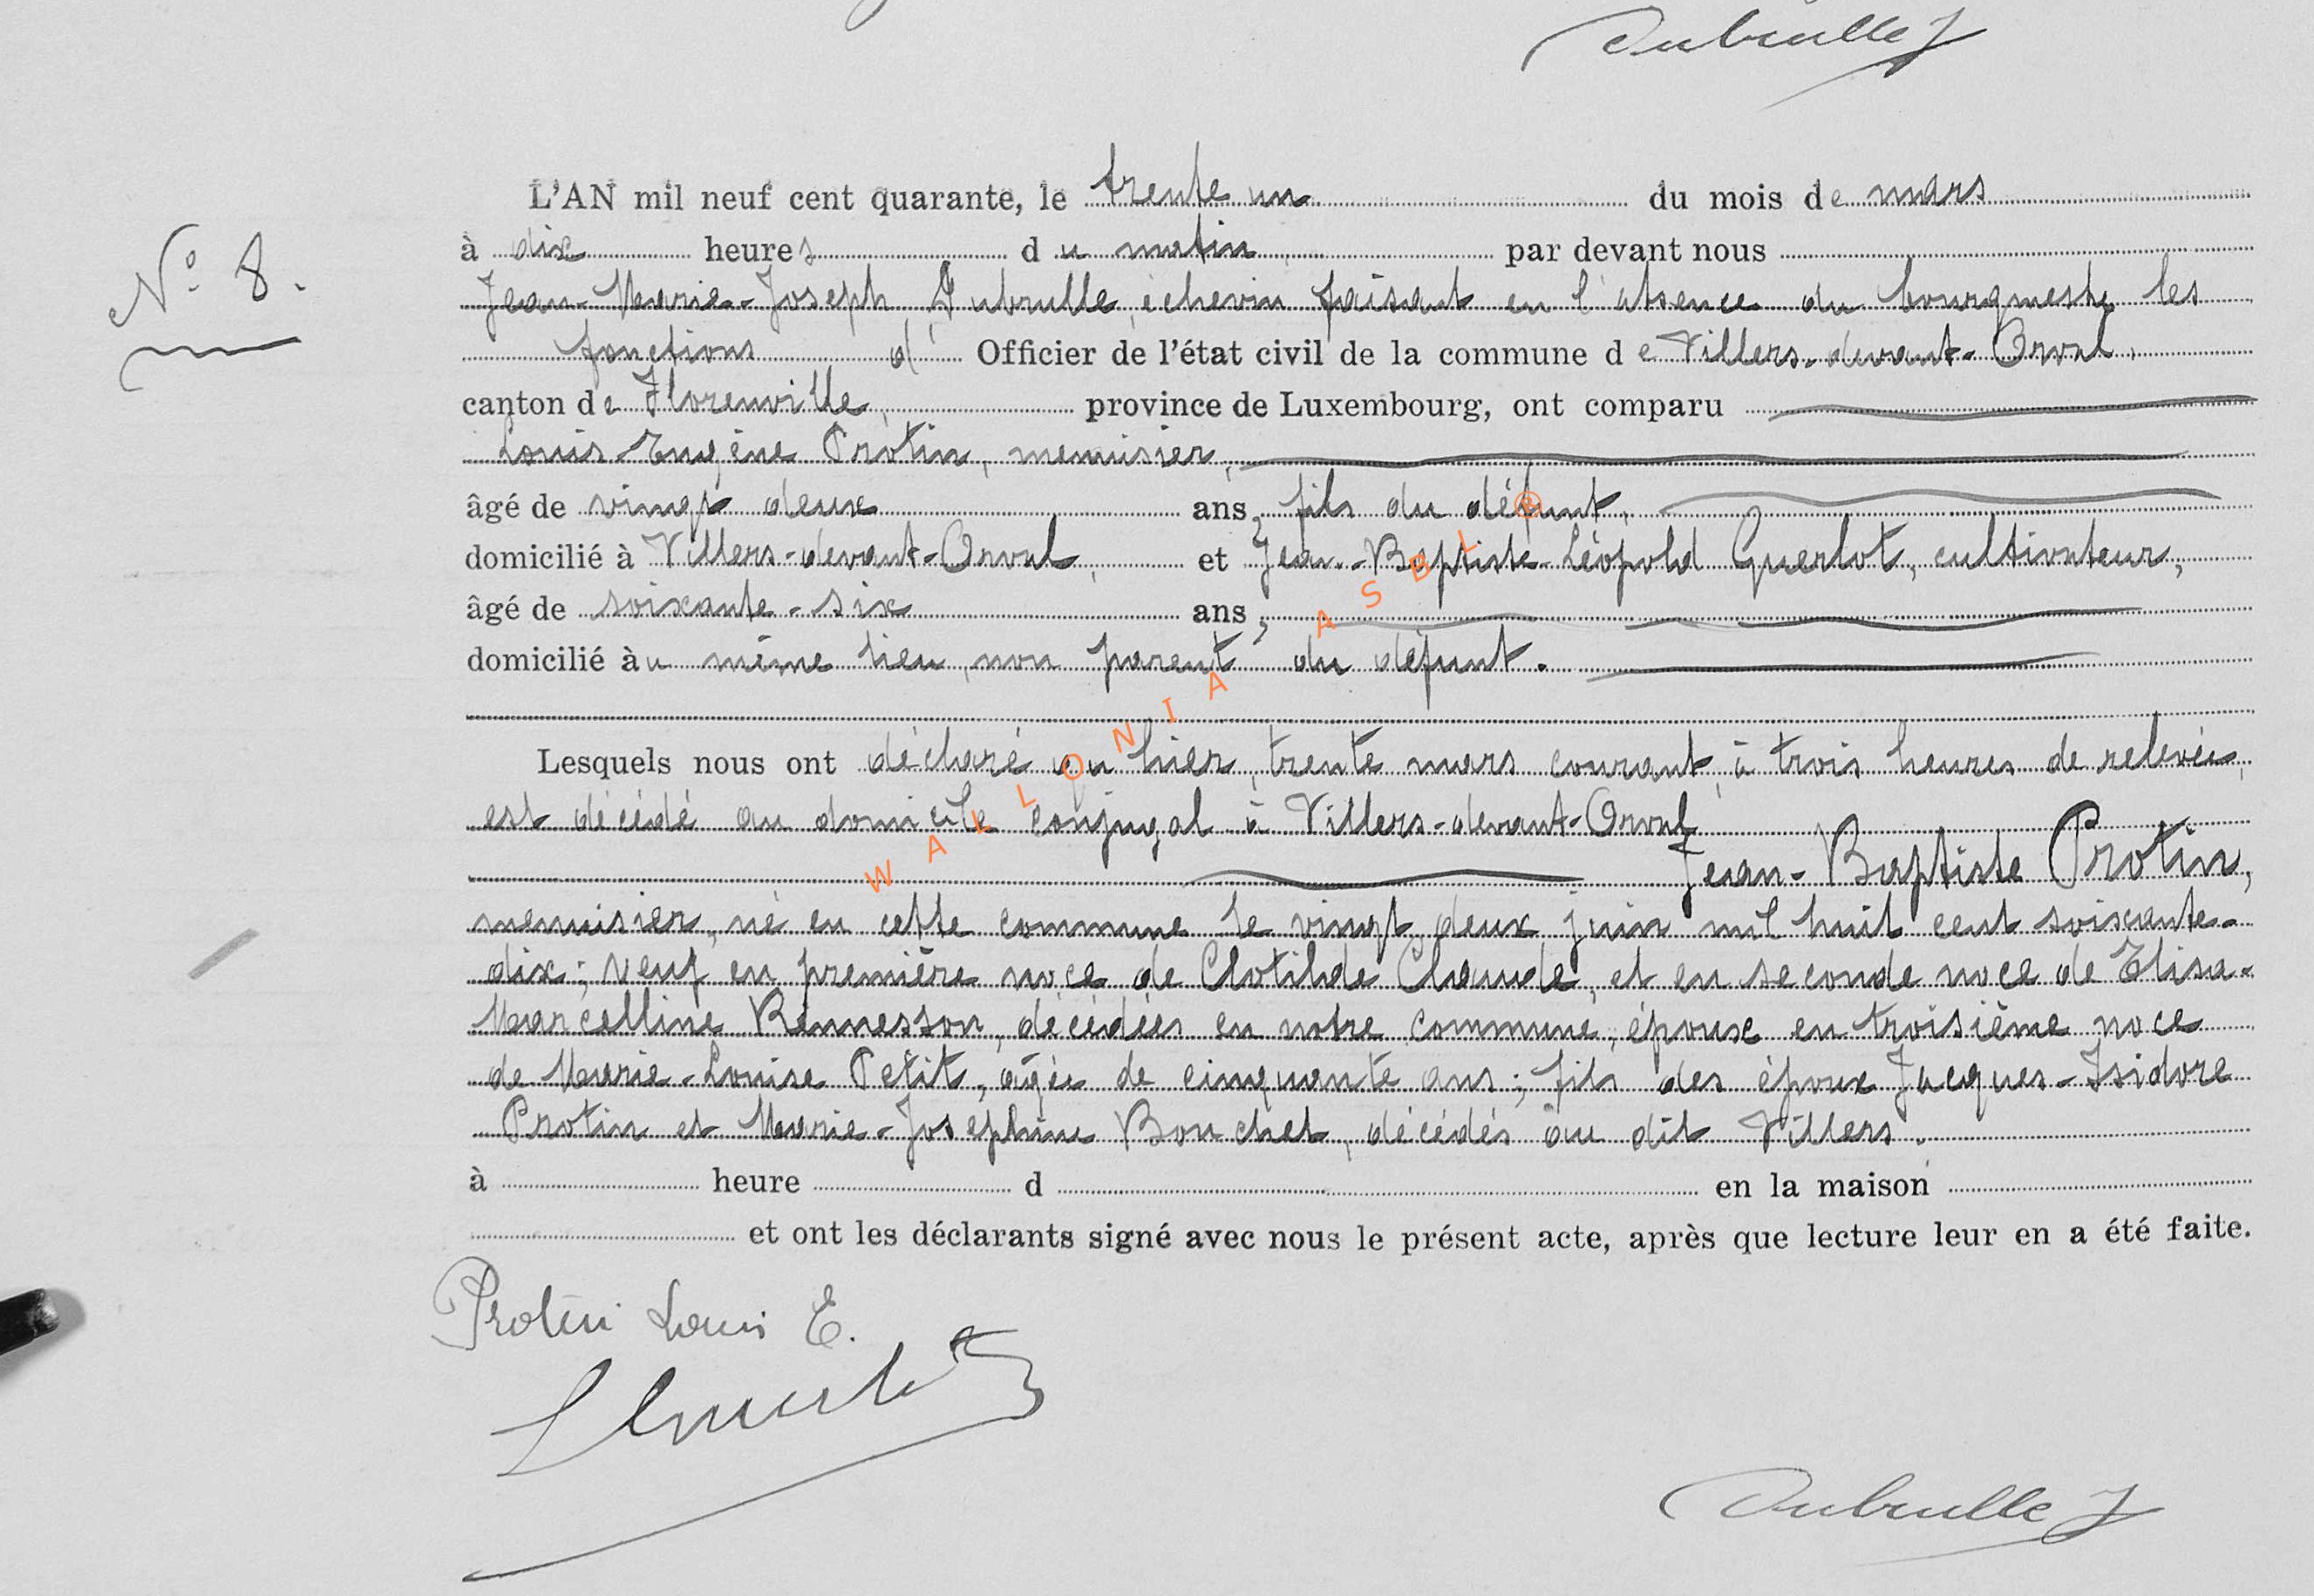 Dubrulle J
L'AN mil neuf cent quarante, le trente un du mois de mars
à dix heures du matin par devant nous
N° 8.
Jean-Marie-Joseph Dubrulle, échevin faisant en l'absence du bourgmestre les
fonctions d' Officier de l'état civil de la commune de Villers-devant-Orval,
canton de Florenville, province de Luxembourg, ont comparu
Louis Eugène Protin, menuisier,
âgé de vingt deux ans, fils du défunt,
domicilié à Villers-devant-Orval, et Jean-Baptiste-Léopold Guerlot, cultivateur,
âgé de soixante-six ans,
domicilié au même lieu, non parent du défunt.
Lesquels nous ont déclaré qu'hier, trente mars courant, à trois heures de relevée,
est décédé au domicile conjugal à Villers-devant-Orval
Jean-Baptiste Protin,
menuisier, né en cette commune le vingt deux juin mil huit cent soixante-
dix; veuf en première noce de Clotilde Claude, et en seconde noce de Elisa-
Marcelline Rennesson, décédées en notre commune, époux en troisième noce
de Marie-Louise Petit, âgée de cinquante ans; fils des époux Jacques-Isidore
Protin et Marie-Josephine Bonchet, décédés au dit Villers.
à heure d en la maison
et ont les déclarants signé avec nous le présent acte, après que lecture leur en a été faite.
Protin Louis E.
Dubrulle J
WALLONIA ASBL ®